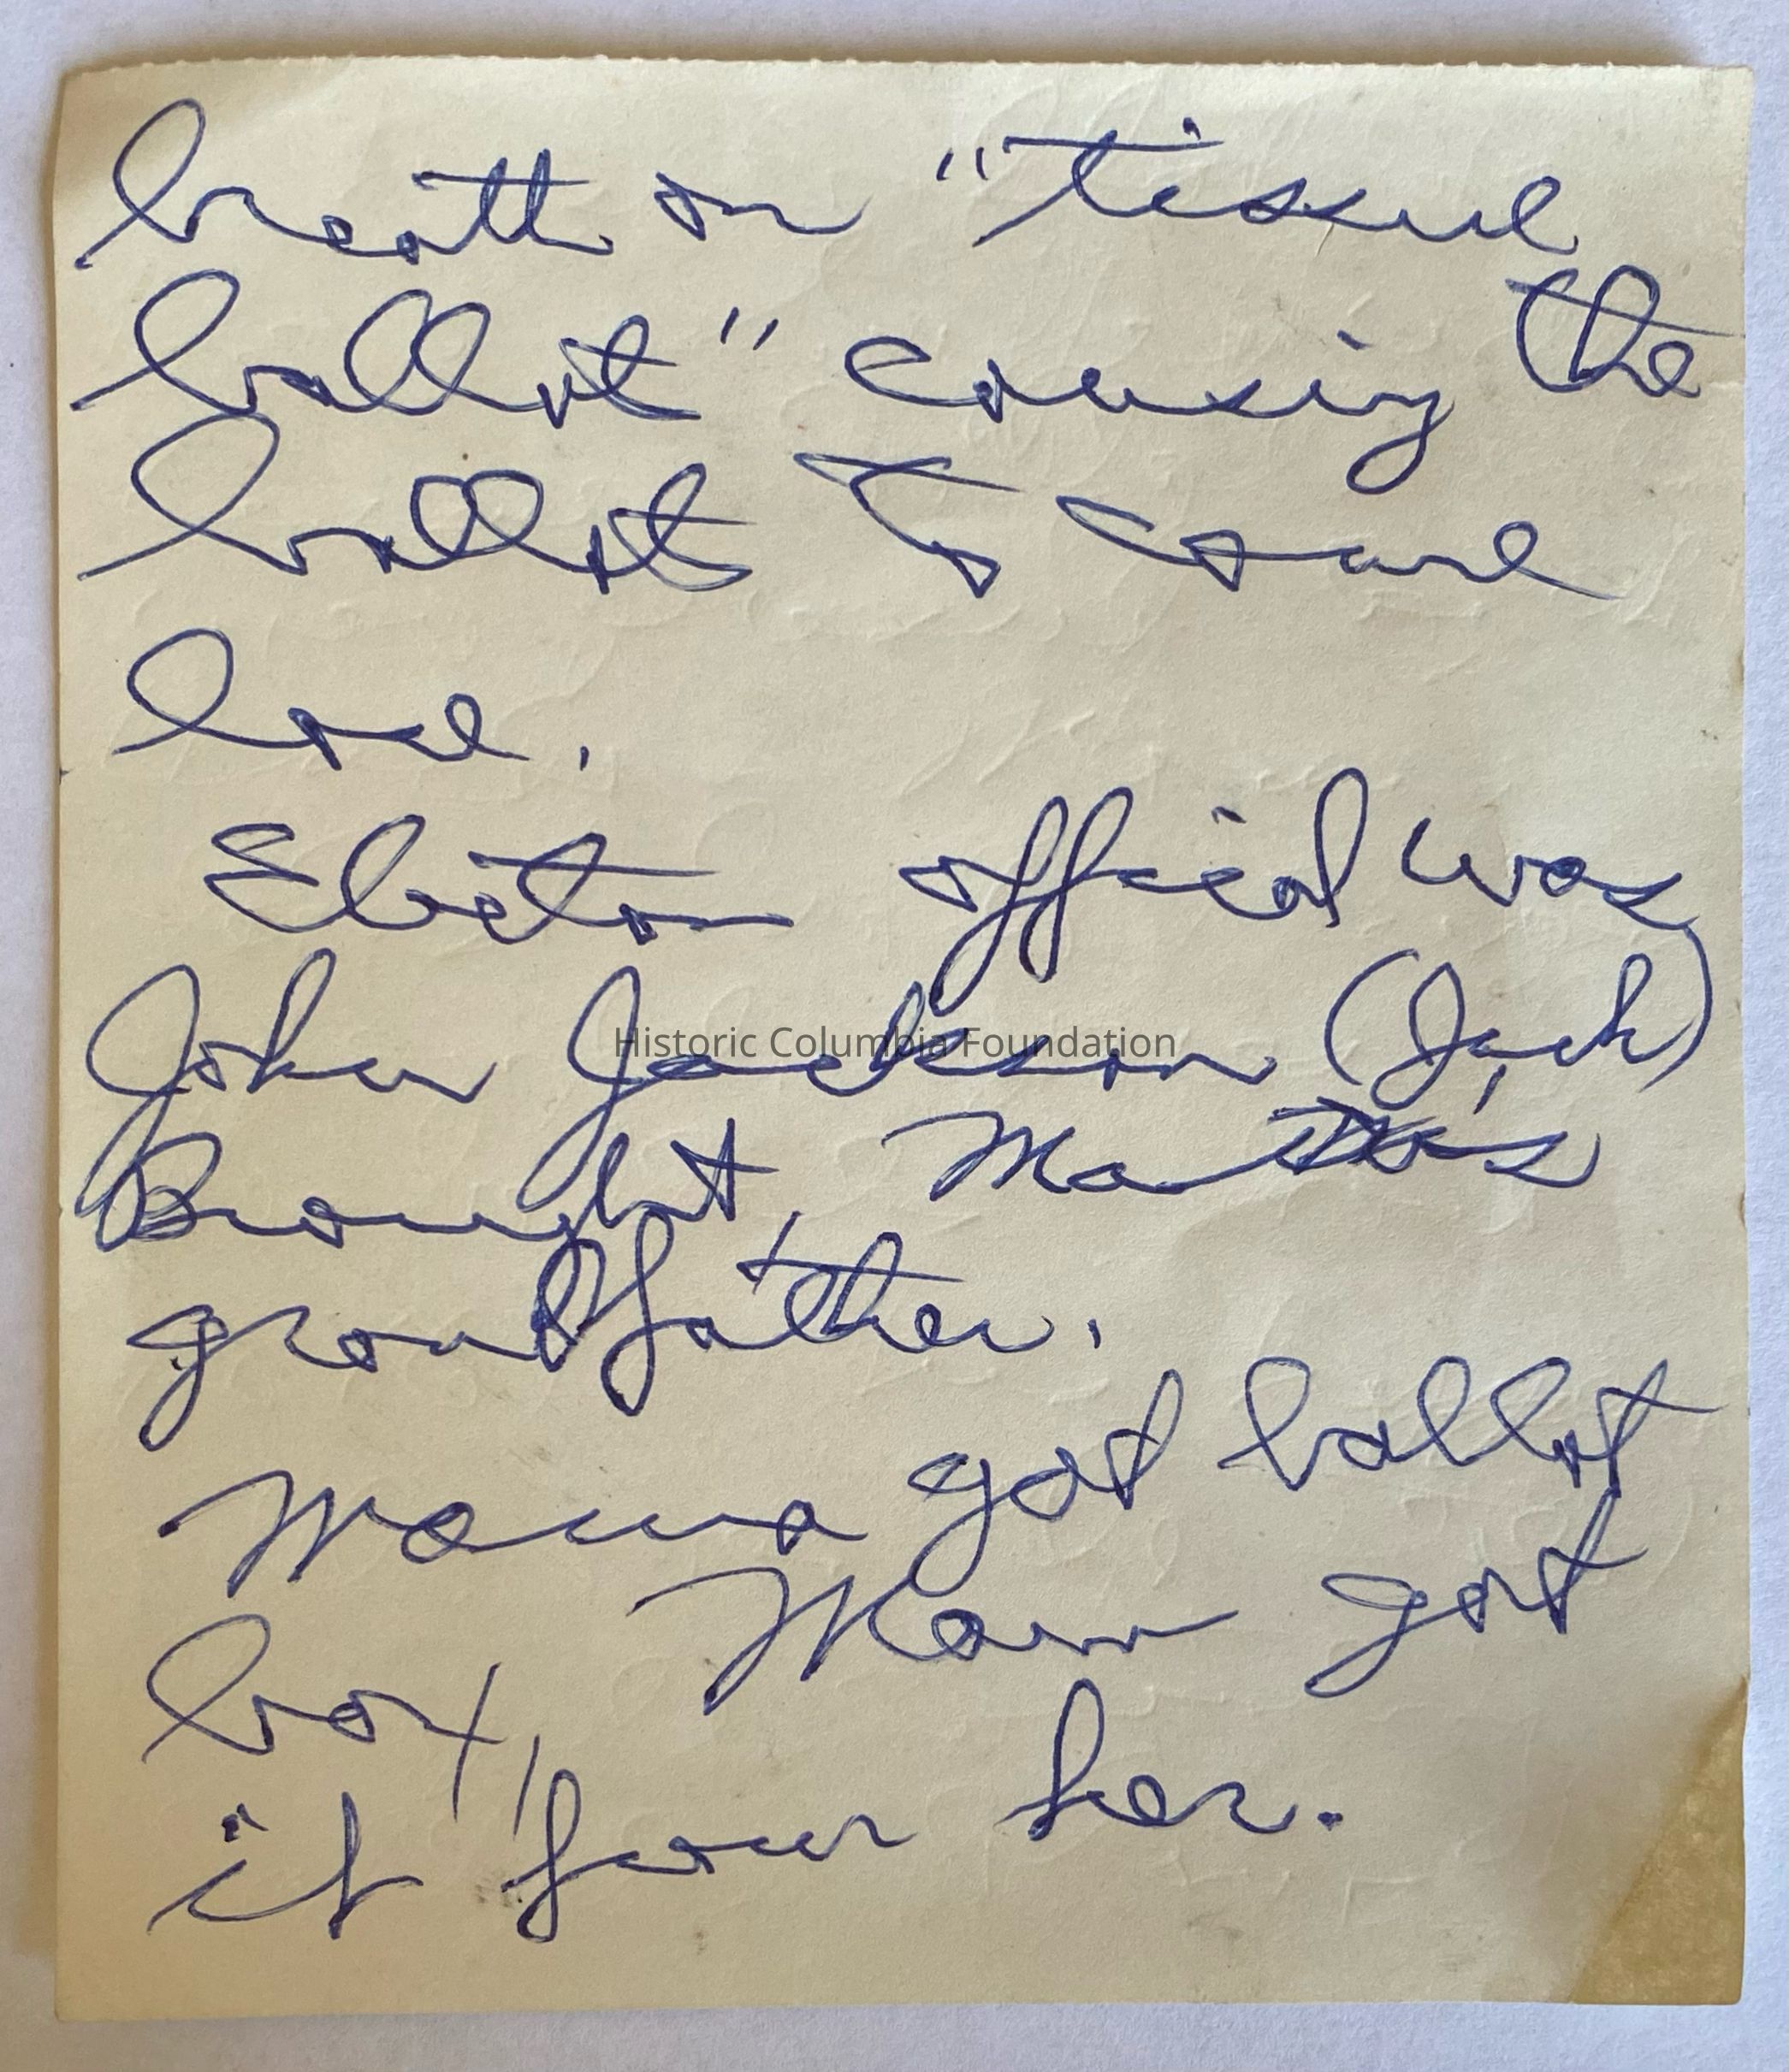 breath on "tissue
ballot" causing the
ballots to come
lose.
Election official was
John Jackson (Jack)
Historic Columbia Foundation
Brought,
grandfather.
Mama got ballot
box, Mom got
it from her.